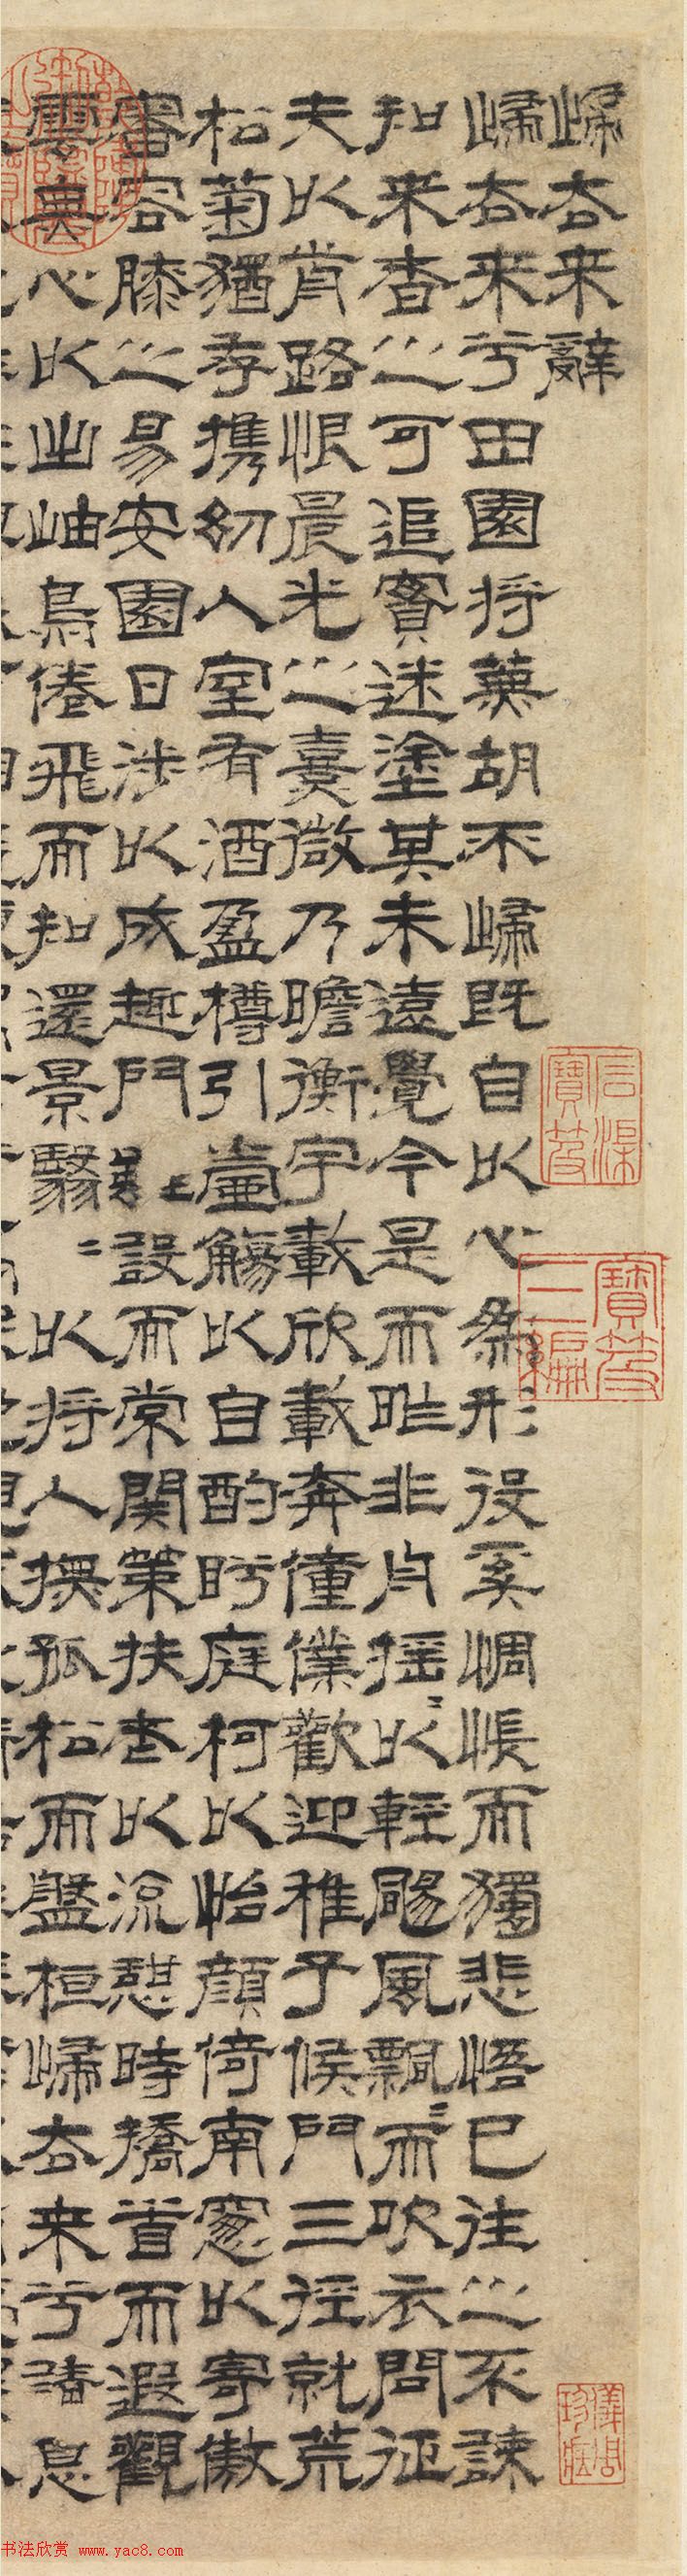 歸去来辭
歸去来兮田園将蕪胡不歸既自以心為形役奚惆悵而獨悲悟已往之不諫
知来者之可追實迷塗其未遠覺今是而昨非舟揺〻以輕颺風飄〻而吹衣問征
夫以前路恨晨光之熹微乃瞻衡宇載欣載奔僮僕歡迎稚子候門三徑就荒
松菊猶存携幼入室有酒盈樽引壷觴以自酌眄庭柯以怡顔倚南窓以寄傲
審容膝之易安園日涉以成趣門雖設而常関策扶老以流憩時撟首而遐觀
雲無心以出岫鳥倦飛而知還景翳〻以将入撫孤松而盤桓歸去来兮請息
石渠寶笈
寶笈三編
儀周珍藏
书法欣赏 www.yac8.com